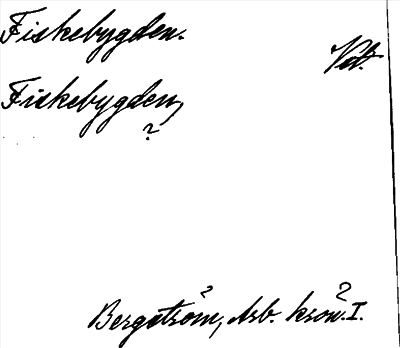 Fiskebygden.
Vst.
Fiskebygden,
?
Bergström, Arb. krön. I.